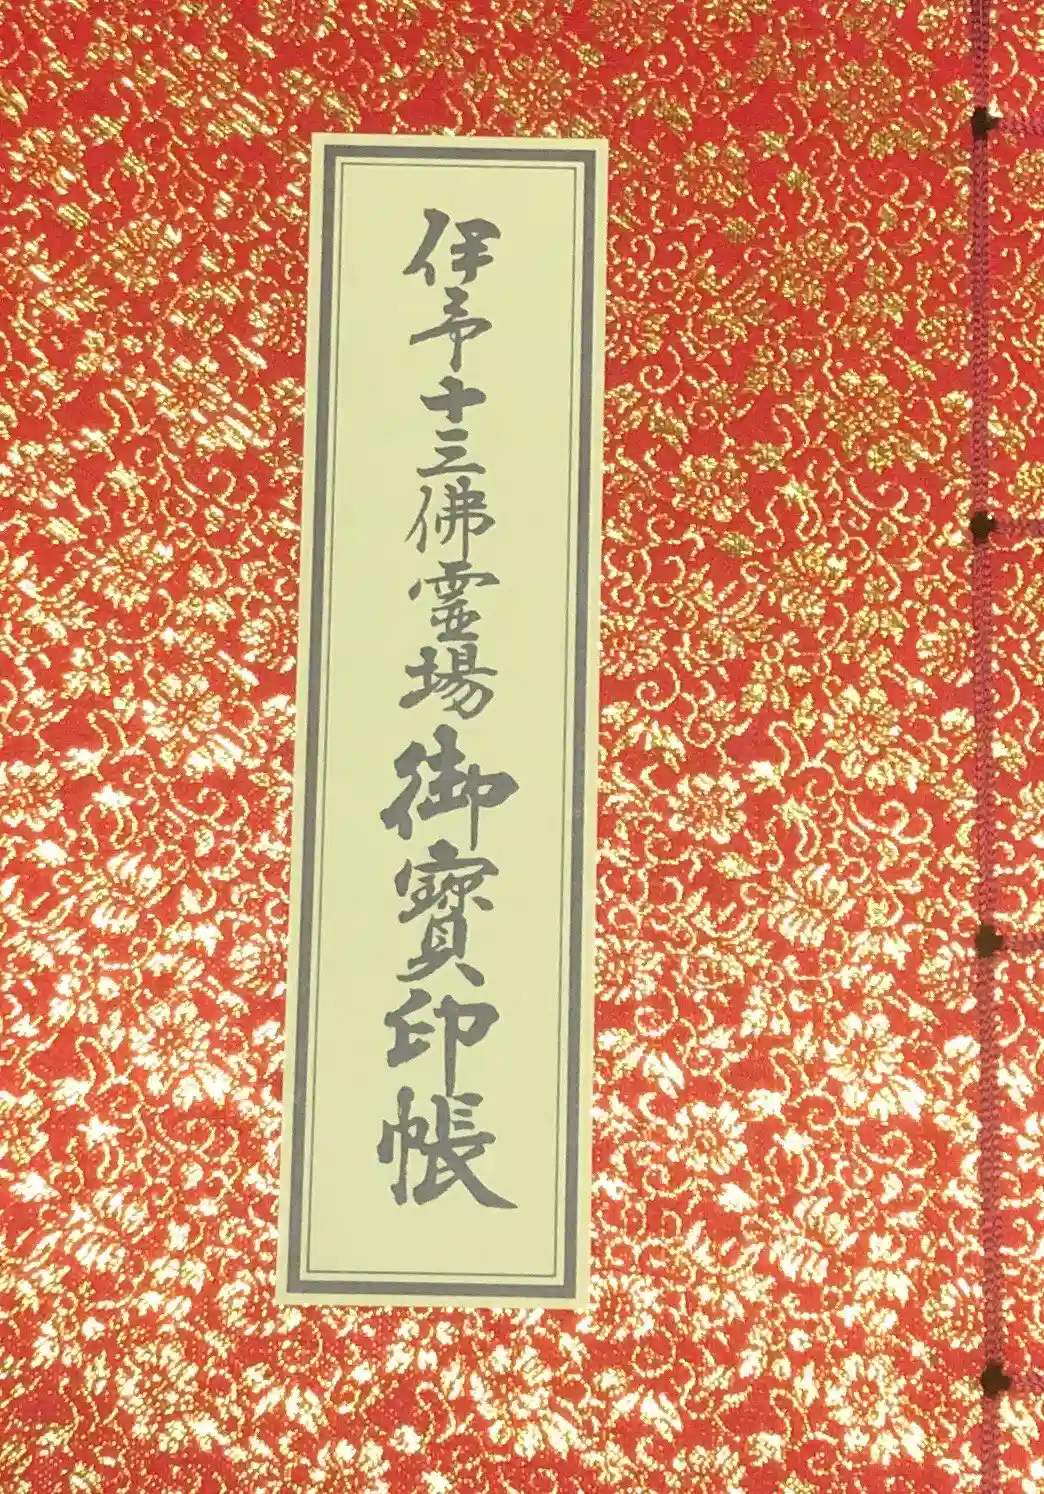 伊予十三佛霊場御寳印帳